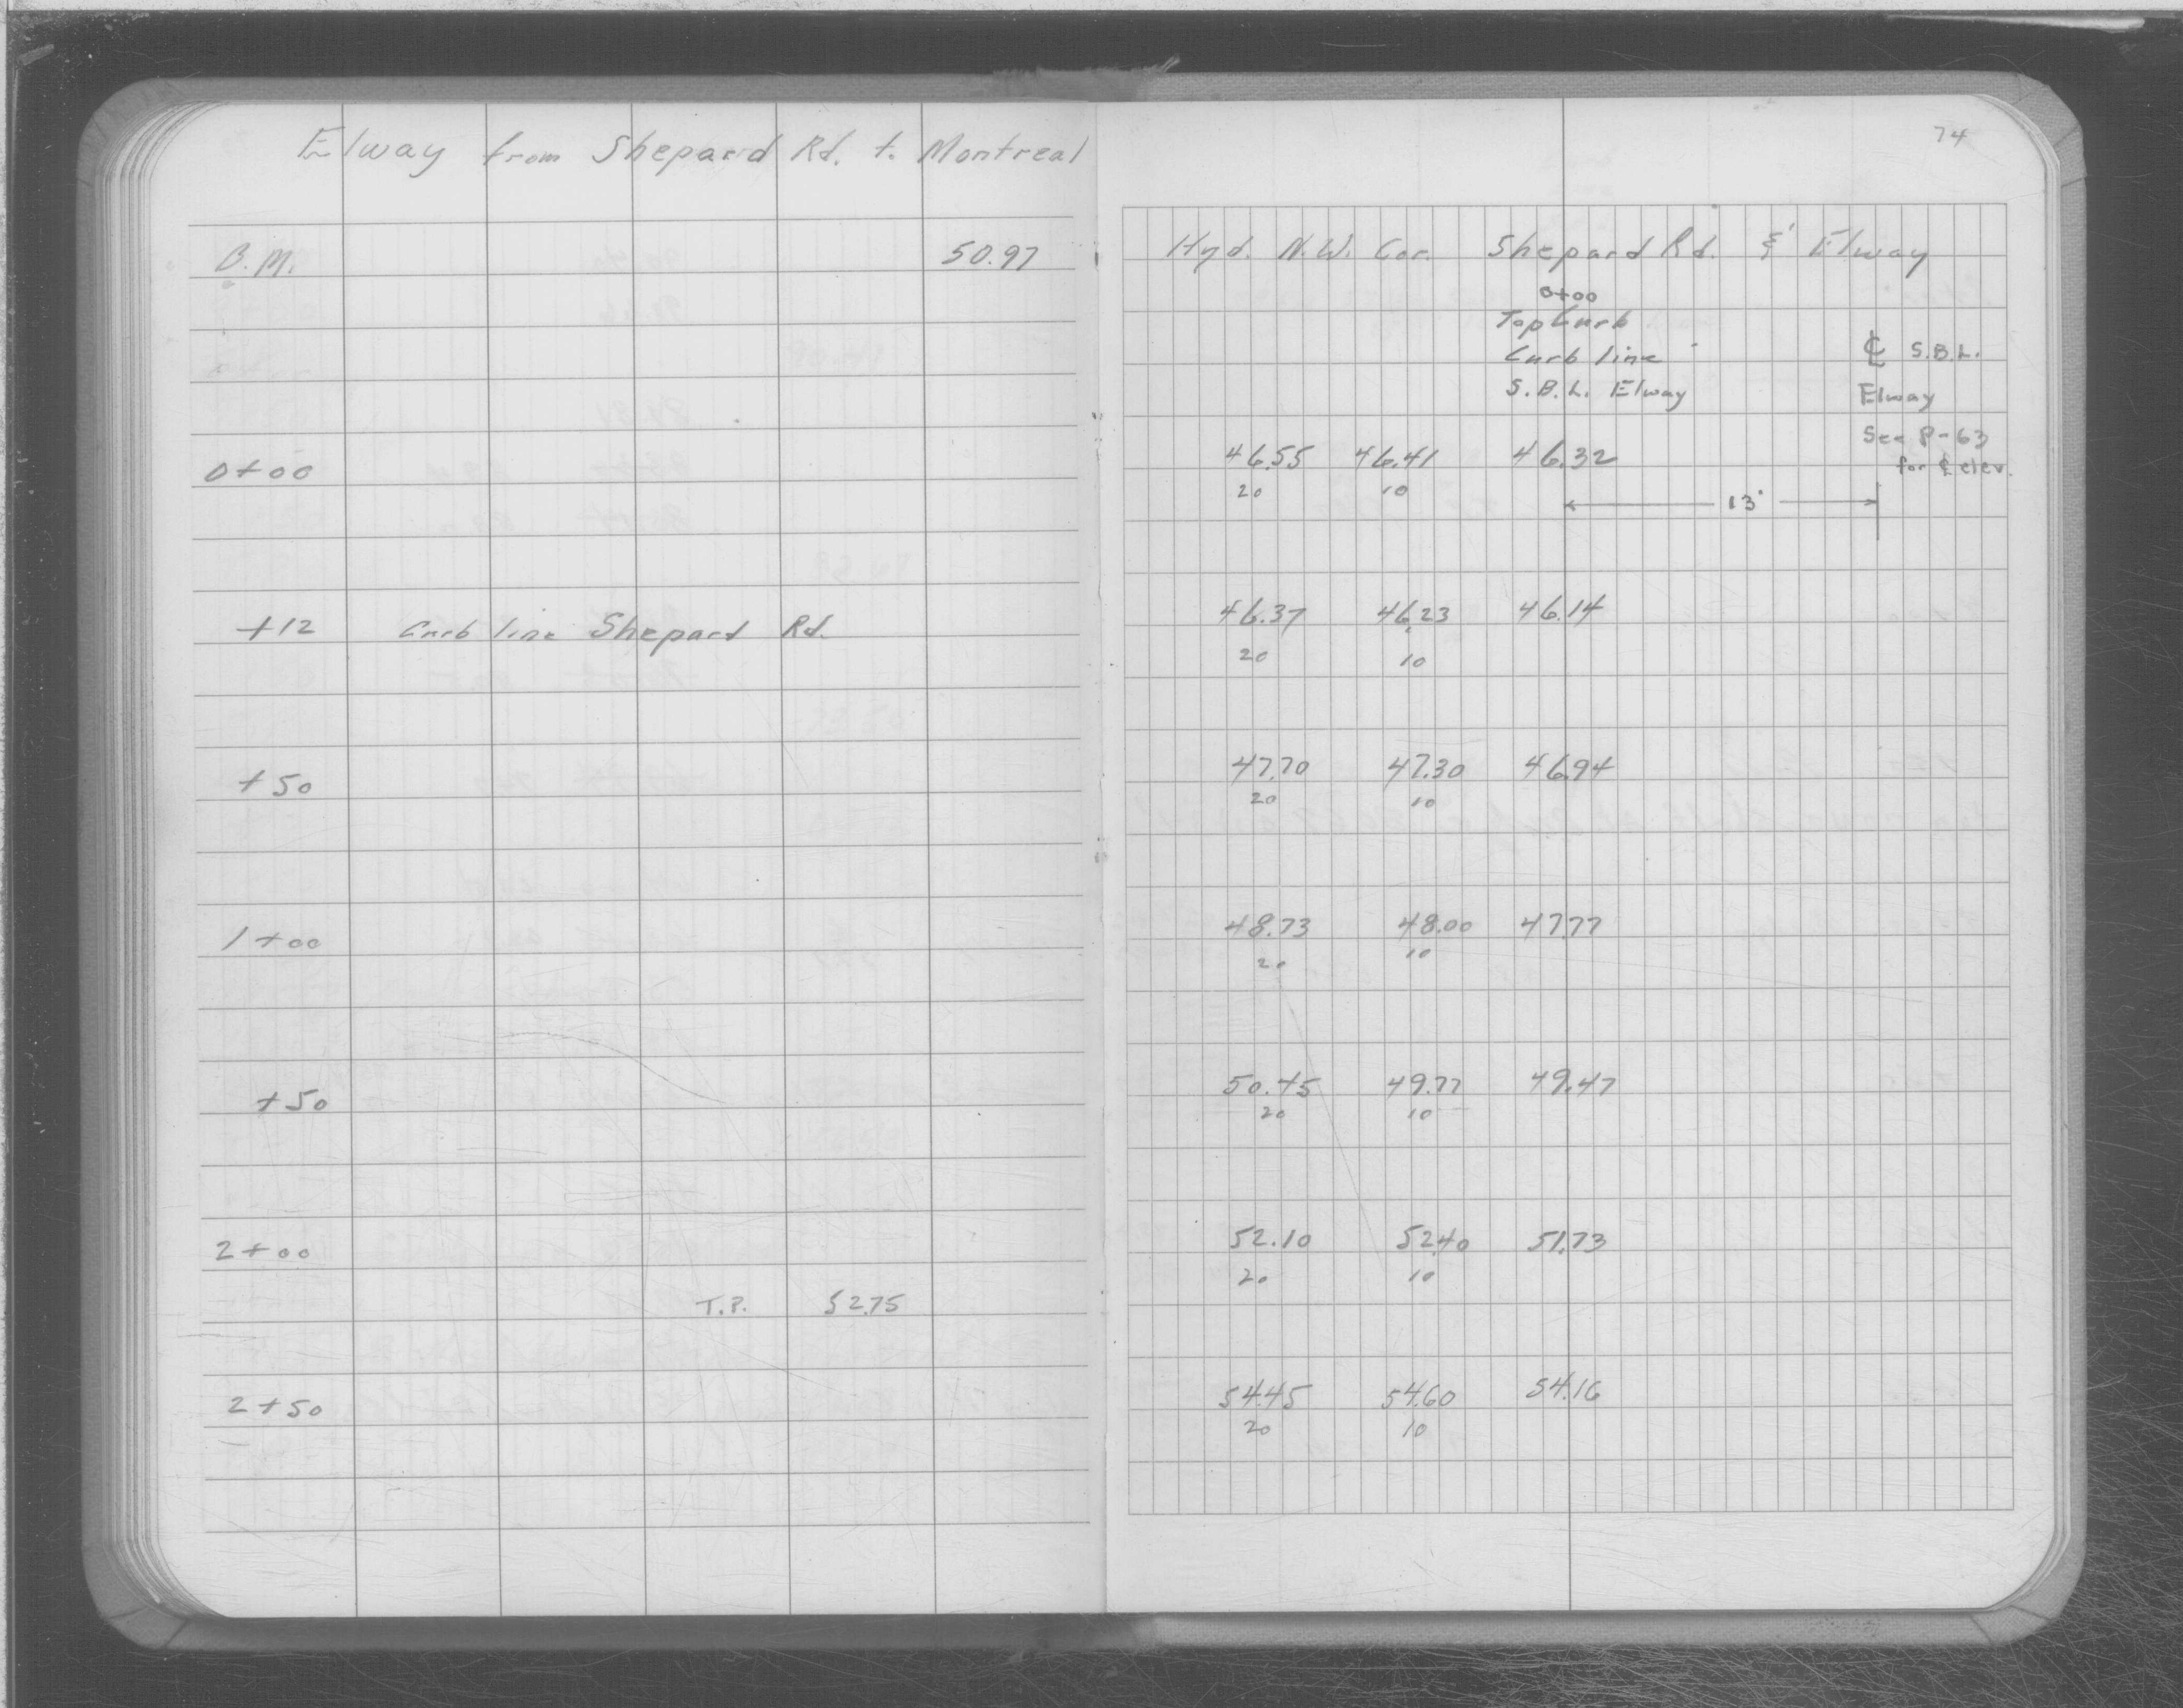 Elway from Shepard Rd. to Montreal
B.M. 50.97
0+00
+12 Curb line Shepard Rd.
+50
1+00
+50
2+00
T.P. 52.75
2+50
74
Hyd. N.W. Cor. Shepard Rd. & Elway
0+00
Top Curb
Curb line
S.B.L. Elway
℄ S.B.L.
Elway
See P-63
for ℄ elev.
46.55 46.41 46.32
20 10
13'
46.37 46.23 46.14
20 10
47.70 47.30 46.94
20 10
48.73 48.00 47.77
20 10
50.45 49.77 49.47
20 10
52.10 52.40 51.73
20 10
54.45 54.60 54.16
20 10